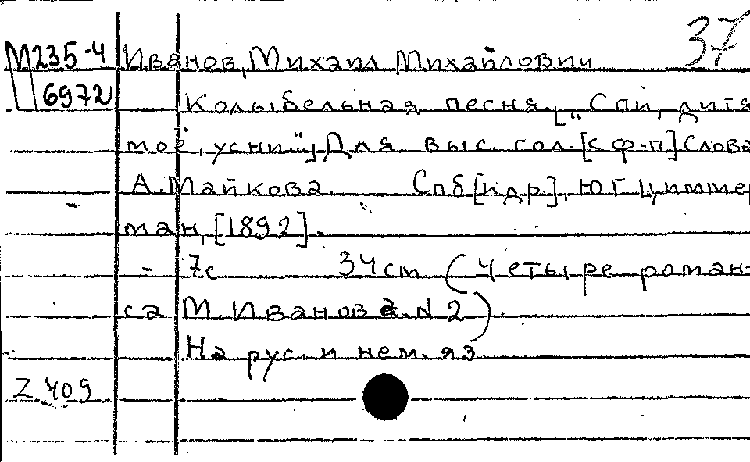 37
М235-4 Иванов, Михаил Михайлович
6972 Колыбельная песня. ["Спи, дитя
моё, усни"] Для выс. гол. [с ф-п] Слова
А. Майкова. Спб [и др.], Ю Г Циммер
ман, [1892].
- 7с 34 cm (Четыре роман-
са М. Иванова. N 2)
На рус. и нем. яз
Z 409